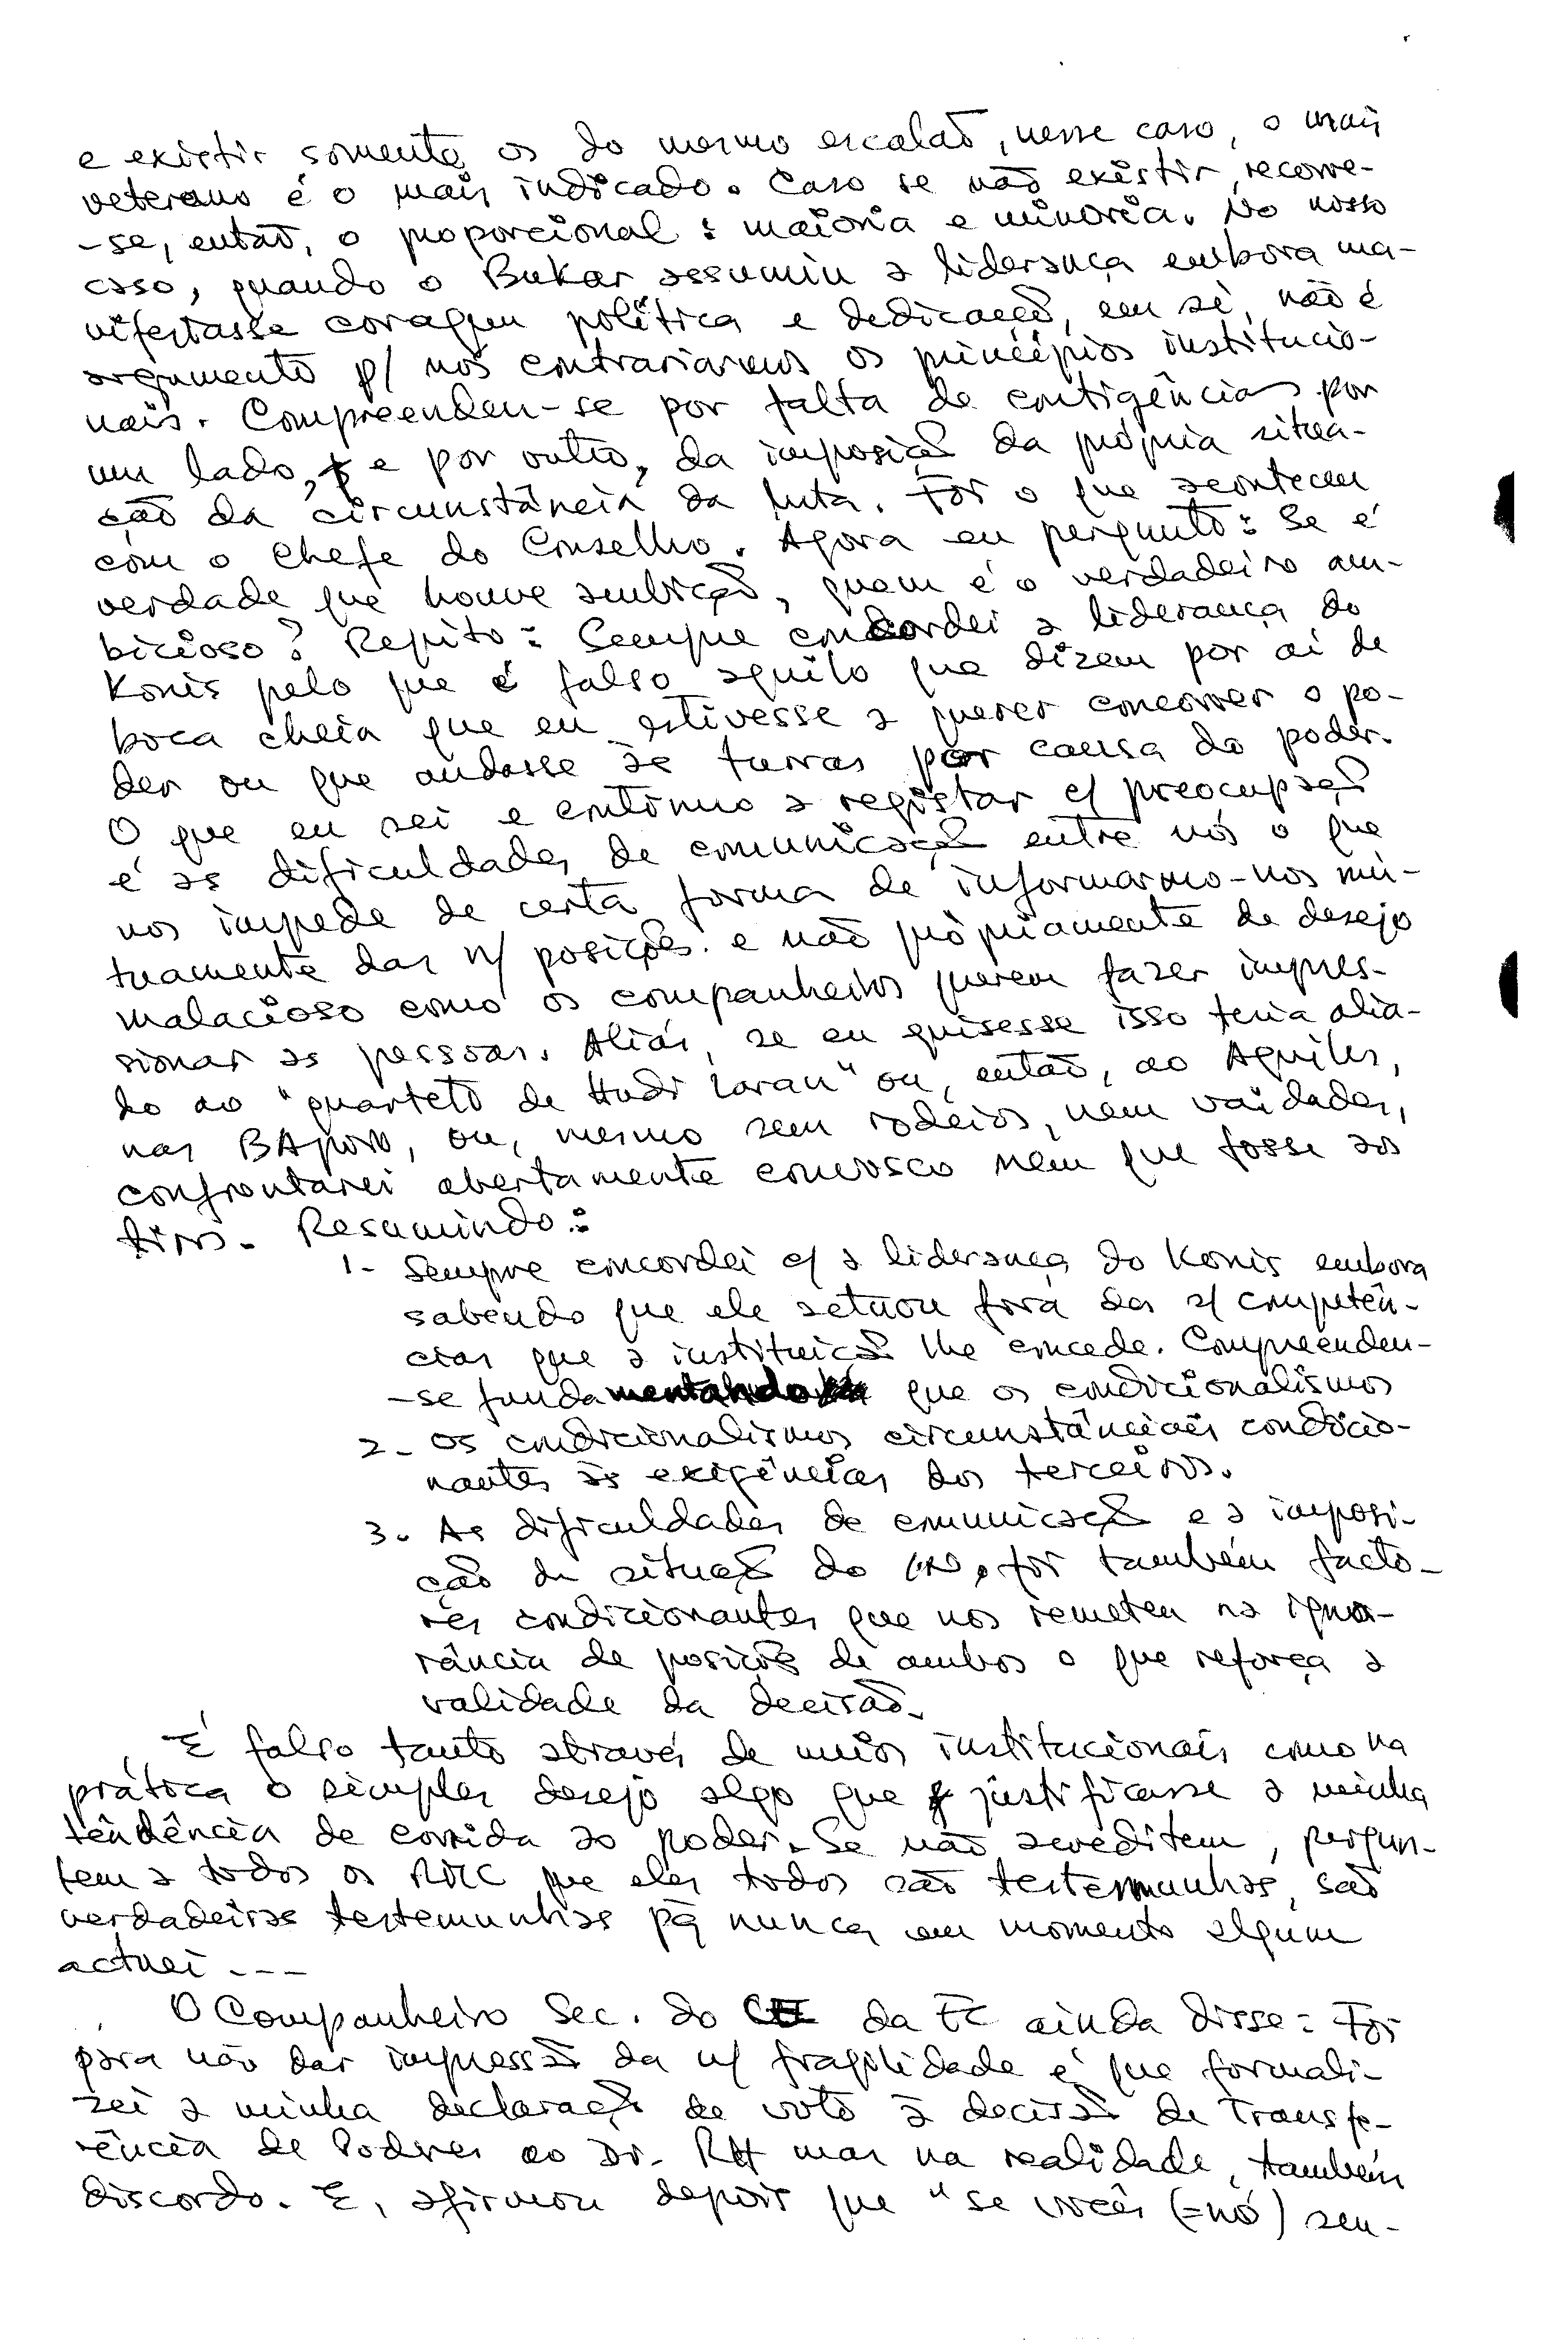 e existir somente os do mesmo escalão, nesse caso, o mais
veterano é o mais indicado. Caso se não existir, recorre-
-se, então, o proporcional: maioria e minoria. No nosso
caso, quando o Bukar assumiu a liderança embora ma-
nifestasse coragem política e dedicação, em si, não é
argumento p/ nós contrariarmos os princípios institucio-
nais. Compreendeu-se por falta de contigências por
um lado, e por outro, da imposição da própria situa-
ção da circunstância da luta. Foi o que aconteceu
com o Chefe do Conselho. Agora eu pergunto: Se é
verdade que houve ambição, quem é o verdadeiro am-
bicioso? Repito: Sempre concordei a liderança do
Konis pelo que é falso aquilo que dizem por aí de
boca cheia que eu estivesse a querer concorrer o po-
der ou que andasse às turras por causa do poder.
O que eu sei e continuo a registar c/ preocupação
é as dificuldades de comunicação entre nós o que
nos impede de certa forma de informarmo-nos mú-
tuamente das n/ posições. e não pròpriamente de desejo
malacioso como os companheiros querem fazer impres-
sionar as pessoas. Aliás, se eu quisesse isso teria alia-
do ao "quarteto de Hudi Laran" ou, então, ao Aquiles,
nas BApovo, ou, mesmo sem rodeios, nem vaidades,
confrontarei abertamente convosco nem que fosse aos
tiros. Resumindo:
1- Sempre concordei c/ a liderança do Konis embora
sabendo que ele actuou fora das s/ competên-
cias que a instituição lhe concede. Compreendeu-
-se que os condicionalismos
2- Os condicionalismos circunstânciais condicio-
nantes às exigências dos terceiros.
3. As dificuldades de comunicação e a imposi-
ção da situação do foi também facto-
res condicionantes que nos remeteu na igno-
rância de posições de ambos o que reforça a
validade da decisão.
É falso tanto através de meios institucionais como na
prática o simples desejo algo que justificasse a minha
tendência de corrida ao poder. Se não acreditem, pergun-
tem a todos os que eles todos são testemunhas, são
verdadeiras testemunhas pq nunca em momento algum
actuei ---
O Companheiro Sec. do da ainda disse: Foi
para não dar impressão da n/ fragilidade é que formali-
zei a minha declaração de voto à decisão de Transfe-
rência de Poderes ao Dr. RH mas na realidade, também
discordo. E, afirmou depois que "se vocês (=nó) sen-